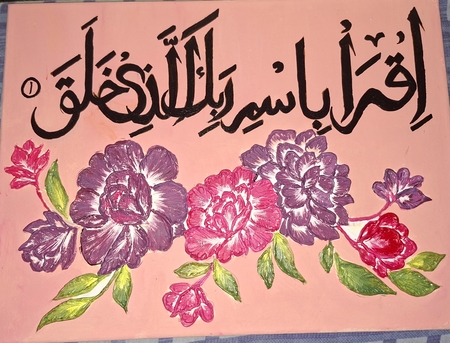 اِقْرَاْ بِاسْمِ رَبِكَ الَّذِیْ خَلَقَ ۱